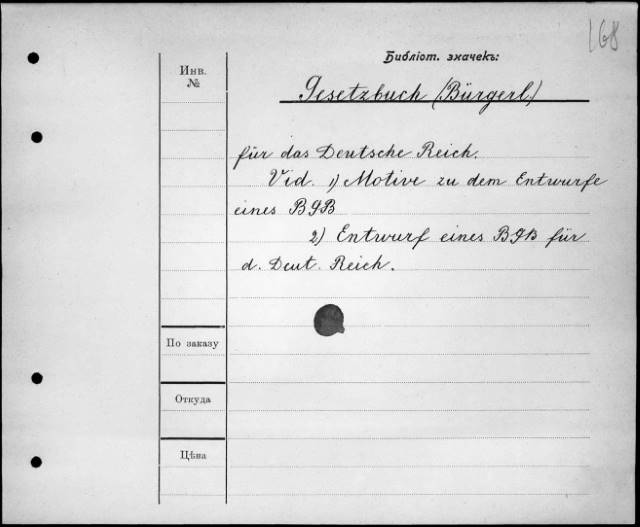 168
Библіот. значекъ:
Инв.
№
Gesetzbuch (Bürgerl.)
für das Deutsche Reich.
Vid. 1) Motive zu dem Entwurfe
eines BGB
2) Entwurf eines BGB für
d. Deut. Reich.
По заказу
Откуда
Цѣна